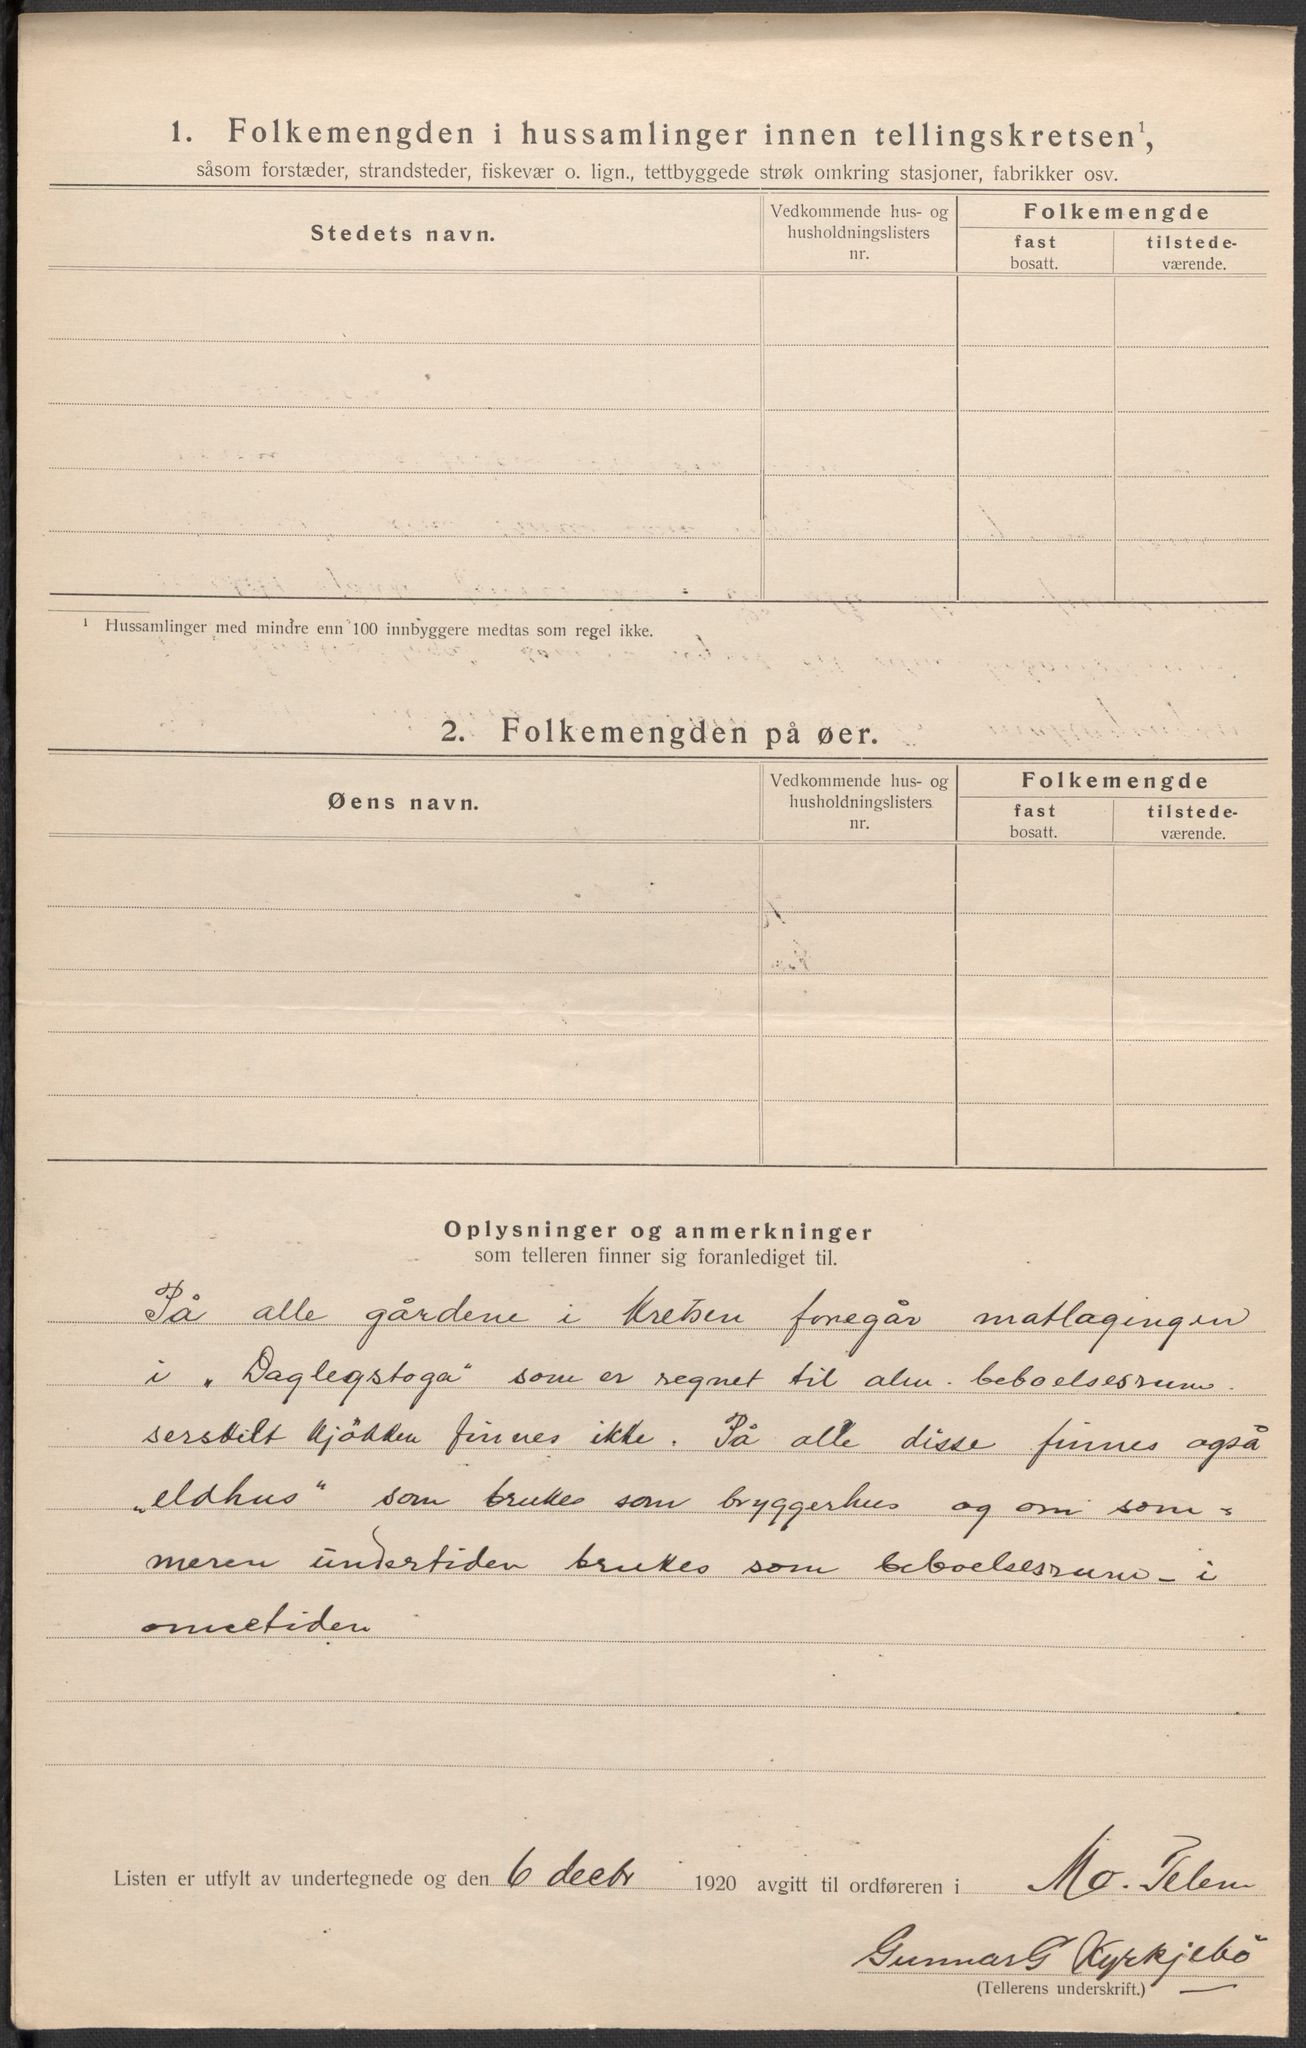 1. Folkemengden i hussamlinger innen tellingskretsen¹,
såsom forstæder, strandsteder, fiskevær o. lign., tettbyggede strøk omkring stasjoner, fabrikker osv.
Stedets navn.
Vedkommende hus- og
husholdningslisters
nr.
Folkemengde
fast
bosatt.
tilstede-
værende.
¹ Hussamlinger med mindre enn 100 innbyggere medtas som regel ikke.
2. Folkemengden på øer.
Øens navn.
Vedkommende hus- og
husholdningslisters
nr.
Folkemengde
fast
bosatt.
tilstede-
værende.
Oplysninger og anmerkninger
som telleren finner sig foranlediget til.
På alle gårdene i kretsen foregår matlagingen
i „Daglegstoga" som er regnet til alm. beboelsesrum.
serskilt kjökken finnes ikke. På alle disse finnes også
„eldhus" som brukes som bryggerhus og om som=
meren undertiden brukes som beboelsesrum - i
onnetiden
Listen er utfylt av undertegnede og den 6 decbr 1920 avgitt til ordføreren i Mo. Telem
Gunnar G Kyrkjebö
(Tellerens underskrift.)